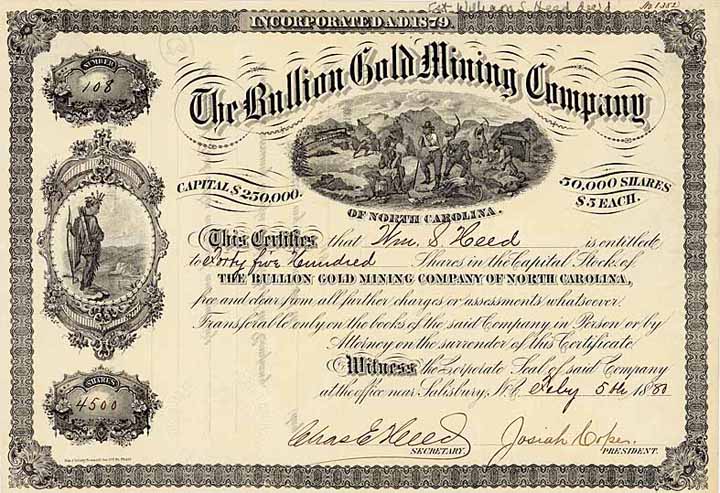 Est William S. Heed
No 1352
INCORPORATED A.D. 1879.
NUMBER
108
The Bullion Gold Mining Company
CAPITAL $250,000.
50,000 SHARES
$5 EACH.
OF NORTH CAROLINA.
This Certifies that Wm. S. Heed is entitled
to Forty five Hundred Shares in the Capital Stock of
THE BULLION GOLD MINING COMPANY OF NORTH CAROLINA,
free and clear from all further charges or assessments whatsoever.
Transferable only on the books of the said Company in Person or by
Attorney on the surrender of this Certificate.
Witness the Corporate Seal of said Company
at the office near Salisbury, N.C. Feby 5th 1880
SHARES
4500
Chas E Heed
SECRETARY.
Josiah
PRESIDENT.